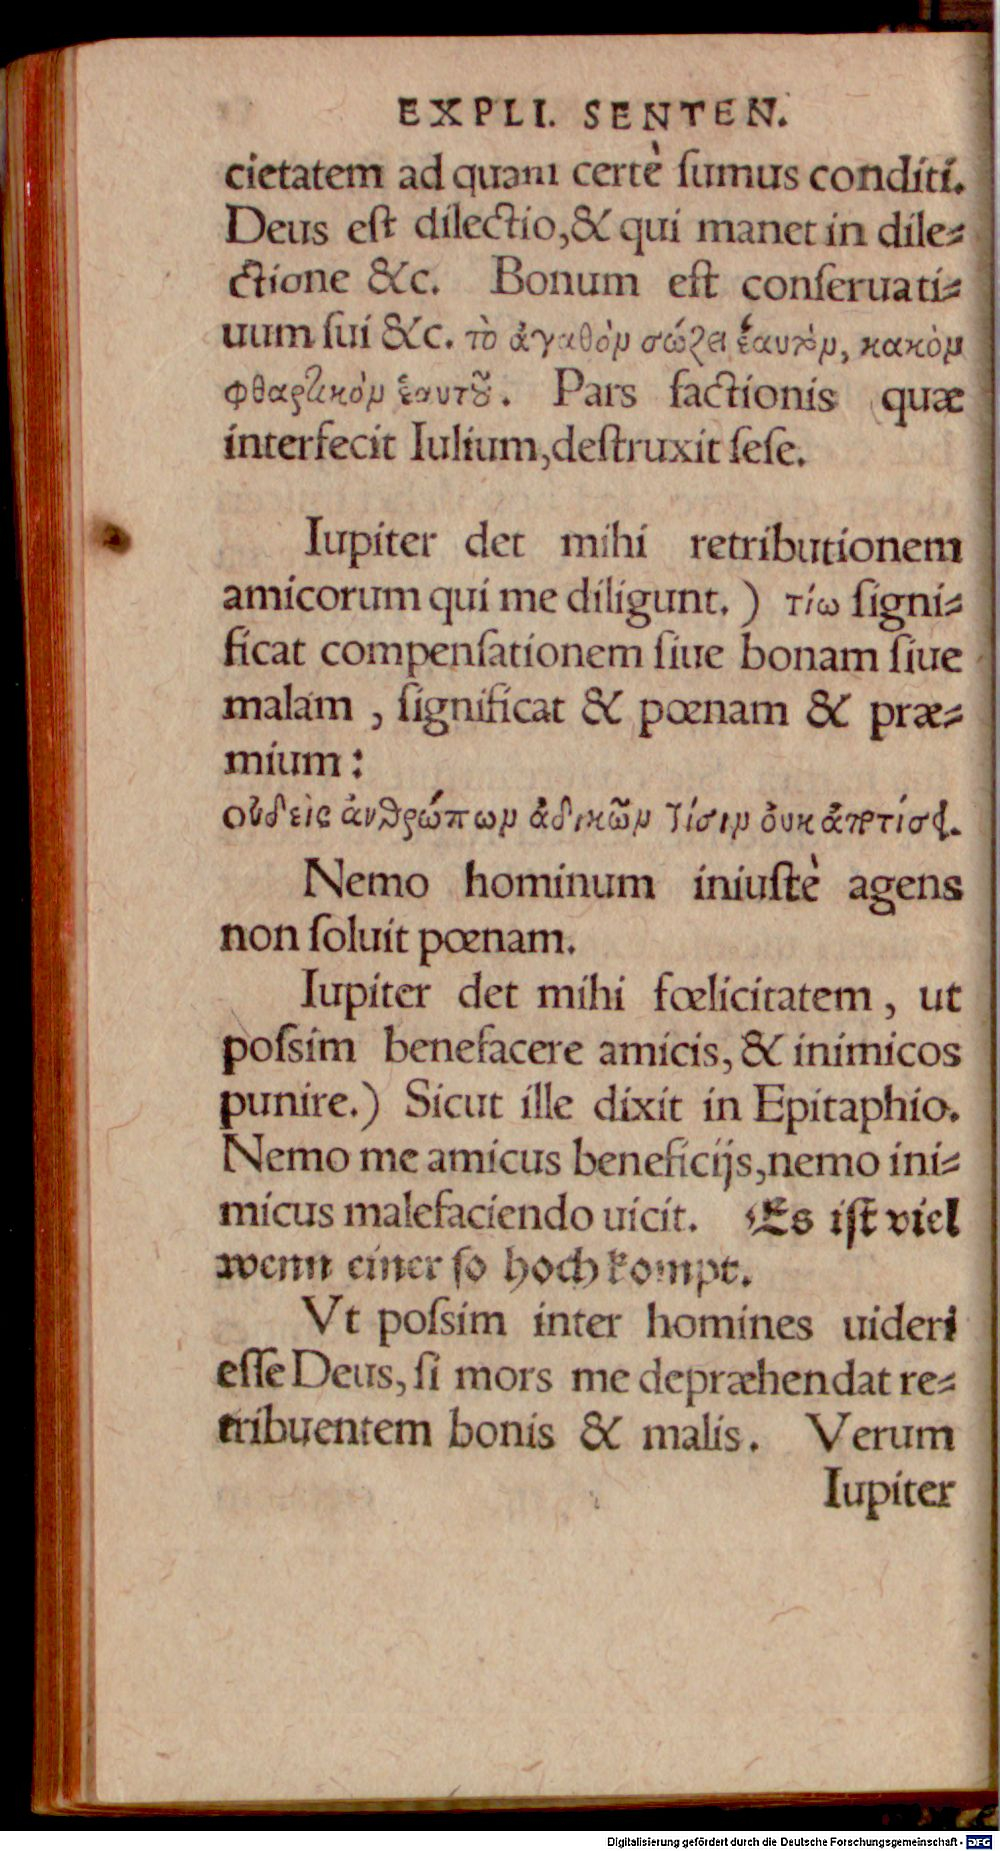 EXPLI. SENTEN.
cietatem ad quam certè ſumus conditi.
Deus eſt dilectio, & qui manet in dile⸗
ctione &c. Bonum eſt conſeruati⸗
uum ſui &c. τὸ ἀγαθὸν σώζει ἑαυτὸν, κακὸν
φθαρτικὸν ἑαυτοῦ. Pars factionis quæ
interfecit Iulium, deſtruxit ſeſe.
Iupiter det mihi retributionem
amicorum qui me diligunt.) τίω ſigni⸗
ficat compenſationem ſiue bonam ſiue
malam, ſignificat & pœnam & præ⸗
mium:
οὐδεὶς ἀνθρώπων ἀδικῶν τίσιν οὐκ ἀποτίσει.
Nemo hominum iniuſtè agens
non ſoluit pœnam.
Iupiter det mihi fœlicitatem, ut
poſsim benefacere amicis, & inimicos
punire.) Sicut ille dixit in Epitaphio.
Nemo me amicus beneficijs, nemo ini⸗
micus malefaciendo uicit. Es iſt viel
wenn einer ſo hoch kompt.
Vt poſsim inter homines uideri
eſſe Deus, ſi mors me depræhendat re⸗
tribuentem bonis & malis. Verum
Iupiter
Digitalisierung gefördert durch die Deutsche Forschungsgemeinschaft - DFG